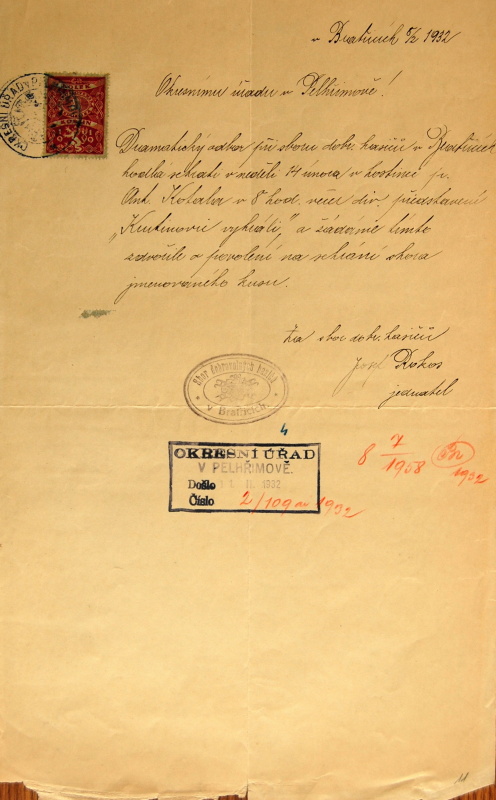 v Bratřicích 5/2 1932
Okresnímu úřadu v Pelhřimově!
Dramatický odbor při sboru dobr. hasičů v Bratřicích
hodlá sehrati v neděli 14 února v hostinci p.
Ant. Kotala v 8 hod. večer div. představení
„Krutinovic vyhráli," a žádáme tímto
zdvořile o povolení na sehrání shora
jmenovaného kusu.
Za sbor dobr. hasičů
Josef Rokos
jednatel
Sbor dobrovolných hasičů
v Bratřicích.
4
8 7/1958
1932
OKRESNÍ ÚŘAD
V PELHŘIMOVĚ.
Došlo II. 1932
Číslo 2/109 1932
11